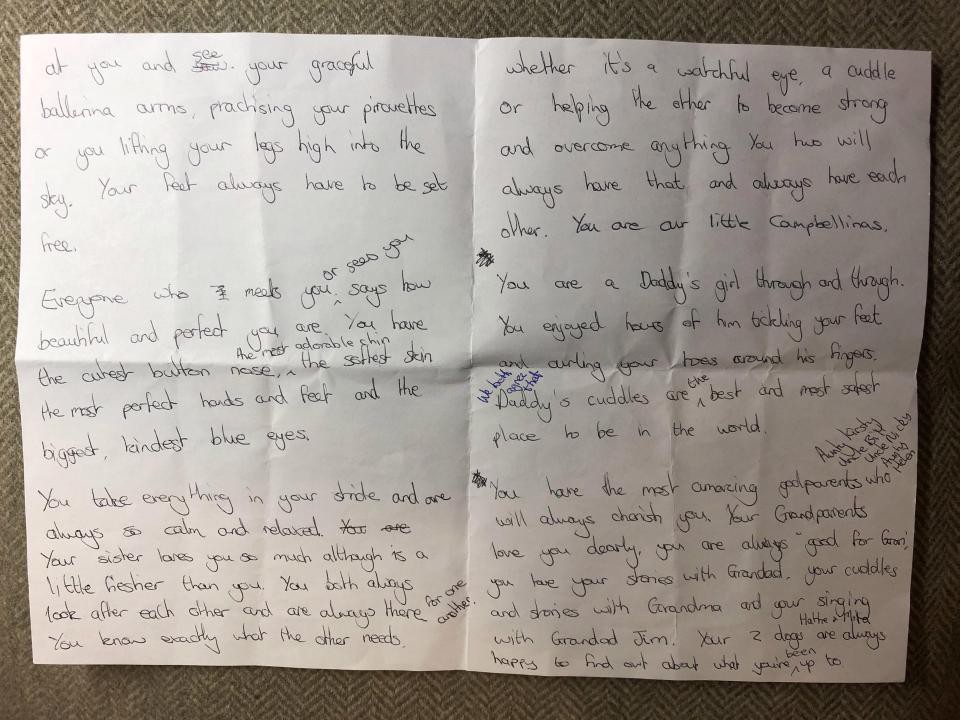 at you and see your graceful
ballerina arms, practising your pirouettes
or you lifting your legs high into the
sky. Your feet always have to be set
free.
Everyone who meets you, or sees you says how
beautiful and perfect you are. You have
the cutest button nose, the most adorable chin, the softest skin
the most perfect hands and feet and the
biggest, kindest blue eyes.
You take everything in your stride and are
always so calm and relaxed. You are
Your sister loves you so much although is a
little fiesher than you. You both always
look after each other and are always there for one another.
You know exactly what the other needs
whether it's a watchful eye, a cuddle
or helping the other to become strong
and overcome anything You two will
always have that and always have each
other. You are our little Campbellinas.
You are a Daddy's girl through and through.
You enjoyed hours of him tickling your feet
and curling your toes around his fingers.
We both agree that
Daddy's cuddles are the best and most safest
place to be in the world.
Aunty Kirsty Uncle Uncle Nicky Aunty Helen
You have the most amazing godparents who
will always cherish you. Your Grandparents
love you dearly, you are always "good for Gran",
you love your stories with Grandad, your cuddles
and stories with Grandma and your singing
with Grandad Jim. Your 2 dogs Hattie & are always
happy to find out about what you're been up to.